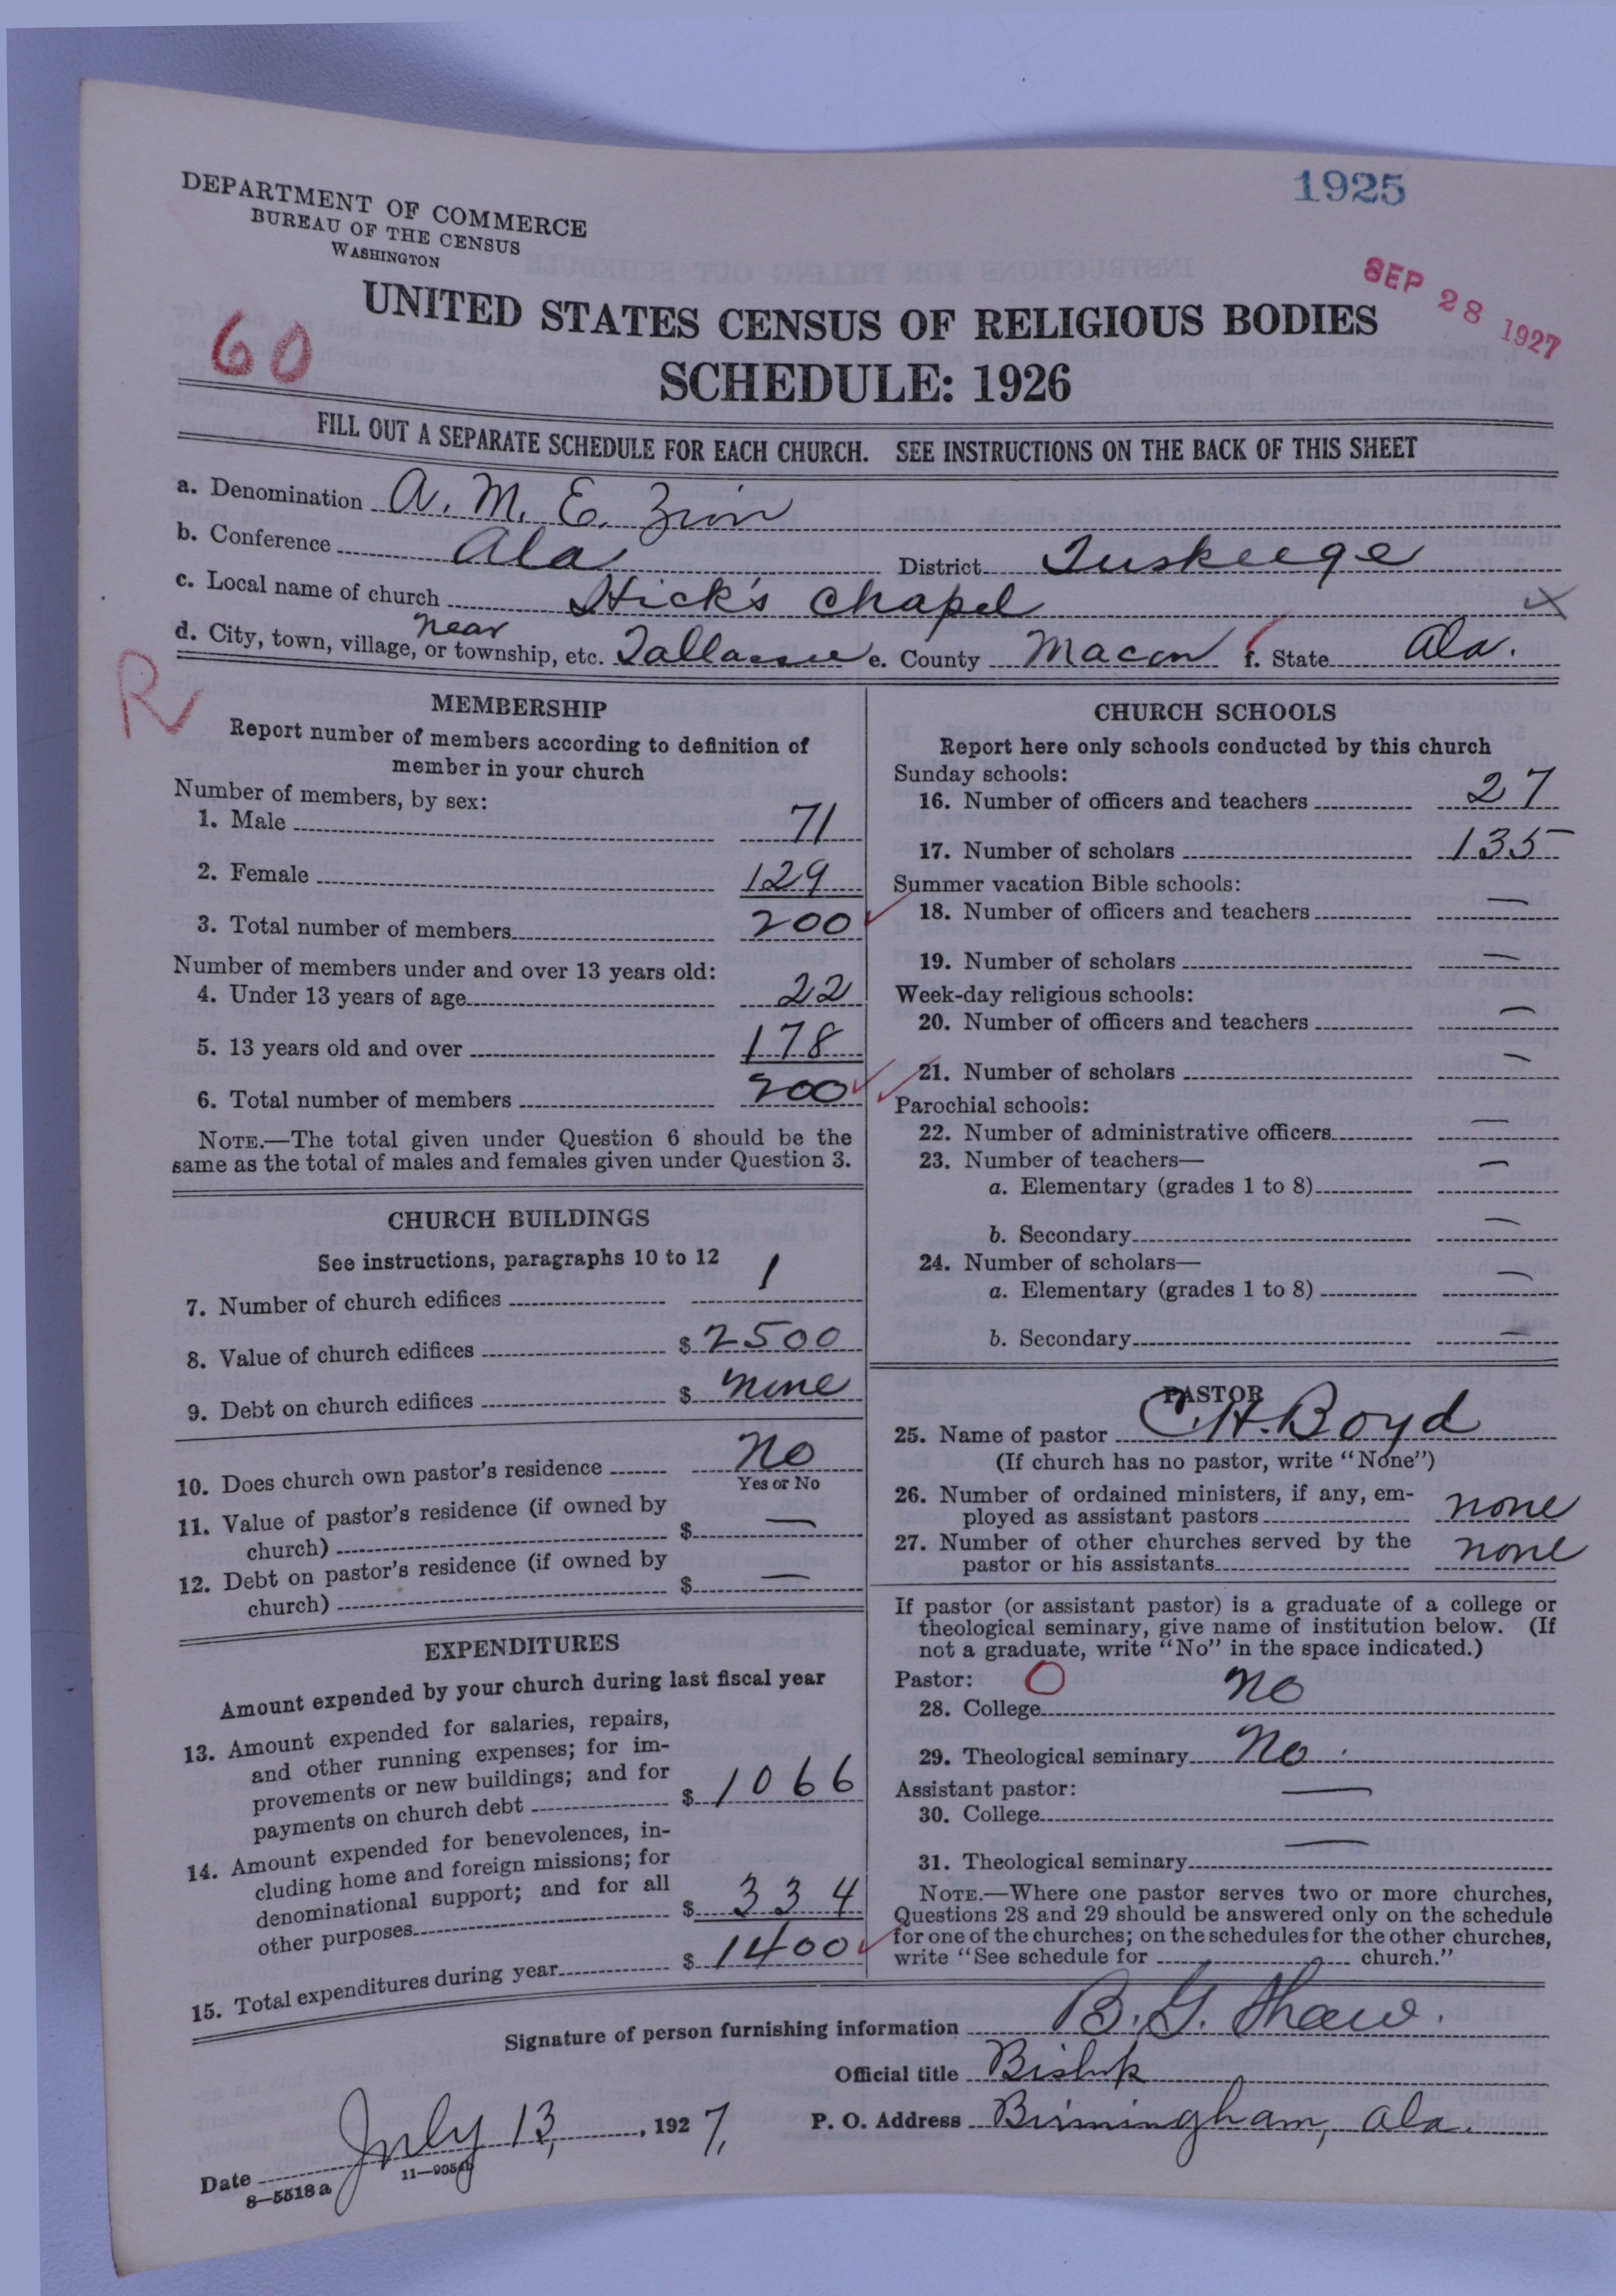 1925
DEPARTMENT OF COMMERCE
BUREAU OF THE CENSUS
WASHINGTON
SEP 28 1927
UNITED STATES CENSUS OF RELIGIOUS BODIES
60
SCHEDULE: 1926
FILL OUT A SEPARATE SCHEDULE FOR EACH CHURCH. SEE INSTRUCTIONS ON THE BACK OF THIS SHEET
a. Denomination A. M. E. Zion
b. Conference Ala District Tuskeege
c. Local name of church Hick's Chapel
d. City, town, village, or township, etc. near Tallassee e. County Macon f. State Ala.
R
MEMBERSHIP
Report number of members according to definition of
member in your church
Number of members, by sex:
1. Male 71
2. Female 129
3. Total number of members 200
Number of members under and over 13 years old:
4. Under 13 years of age 22
5. 13 years old and over 178
6. Total number of members 200
NOTE.—The total given under Question 6 should be the
same as the total of males and females given under Question 3.
CHURCH BUILDINGS
See instructions, paragraphs 10 to 12
7. Number of church edifices 1
8. Value of church edifices $ 2500
9. Debt on church edifices $ none
10. Does church own pastor's residence No
Yes or No
11. Value of pastor's residence (if owned by
church) $ —
12. Debt on pastor's residence (if owned by
church) $ —
EXPENDITURES
Amount expended by your church during last fiscal year
13. Amount expended for salaries, repairs,
and other running expenses; for im-
provements or new buildings; and for
payments on church debt $ 1066
14. Amount expended for benevolences, in-
cluding home and foreign missions; for
denominational support; and for all
other purposes $ 334
15. Total expenditures during year $ 1400
CHURCH SCHOOLS
Report here only schools conducted by this church
Sunday schools:
16. Number of officers and teachers 27
17. Number of scholars 135
Summer vacation Bible schools:
18. Number of officers and teachers —
19. Number of scholars —
Week-day religious schools:
20. Number of officers and teachers —
21. Number of scholars —
Parochial schools:
22. Number of administrative officers —
23. Number of teachers— —
a. Elementary (grades 1 to 8)
b. Secondary —
24. Number of scholars—
a. Elementary (grades 1 to 8) —
b. Secondary —
PASTOR
25. Name of pastor C. H. Boyd
(If church has no pastor, write "None")
26. Number of ordained ministers, if any, em-
ployed as assistant pastors none
27. Number of other churches served by the
pastor or his assistants none
If pastor (or assistant pastor) is a graduate of a college or
theological seminary, give name of institution below. (If
not a graduate, write "No" in the space indicated.)
Pastor: O
28. College No
29. Theological seminary No.
Assistant pastor:
30. College —
31. Theological seminary —
NOTE.—Where one pastor serves two or more churches,
Questions 28 and 29 should be answered only on the schedule
for one of the churches; on the schedules for the other churches,
write "See schedule for church."
Signature of person furnishing information B. G. Shaw.
Official title Bishop
Date July 13, 1927, P. O. Address Birmingham, Ala.
8—5518 a 11—9054b